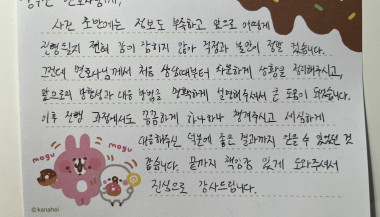 변호사님께.
사건 초반에는 정보도 부족하고 앞으로 어떻게
진행될지 전혀 감이 잡히지 않아 걱정과 불안이 정말 컸습니다.
그런데 변호사님께서 처음 상담때부터 차분하게 상황을 정리해주시고,
앞으로의 방향성과 대응 방법을 명확하게 설명해주셔서 큰 도움이 되었습니다.
이후 진행 과정에서도 꼼꼼하게 하나하나 챙겨주시고 세심하게
대응해주신 덕분에 좋은 결과까지 얻을 수 있었던 것
같습니다. 끝까지 책임감 있게 도와주셔서
진심으로 감사드립니다.
mogu
mogu
©kanahei